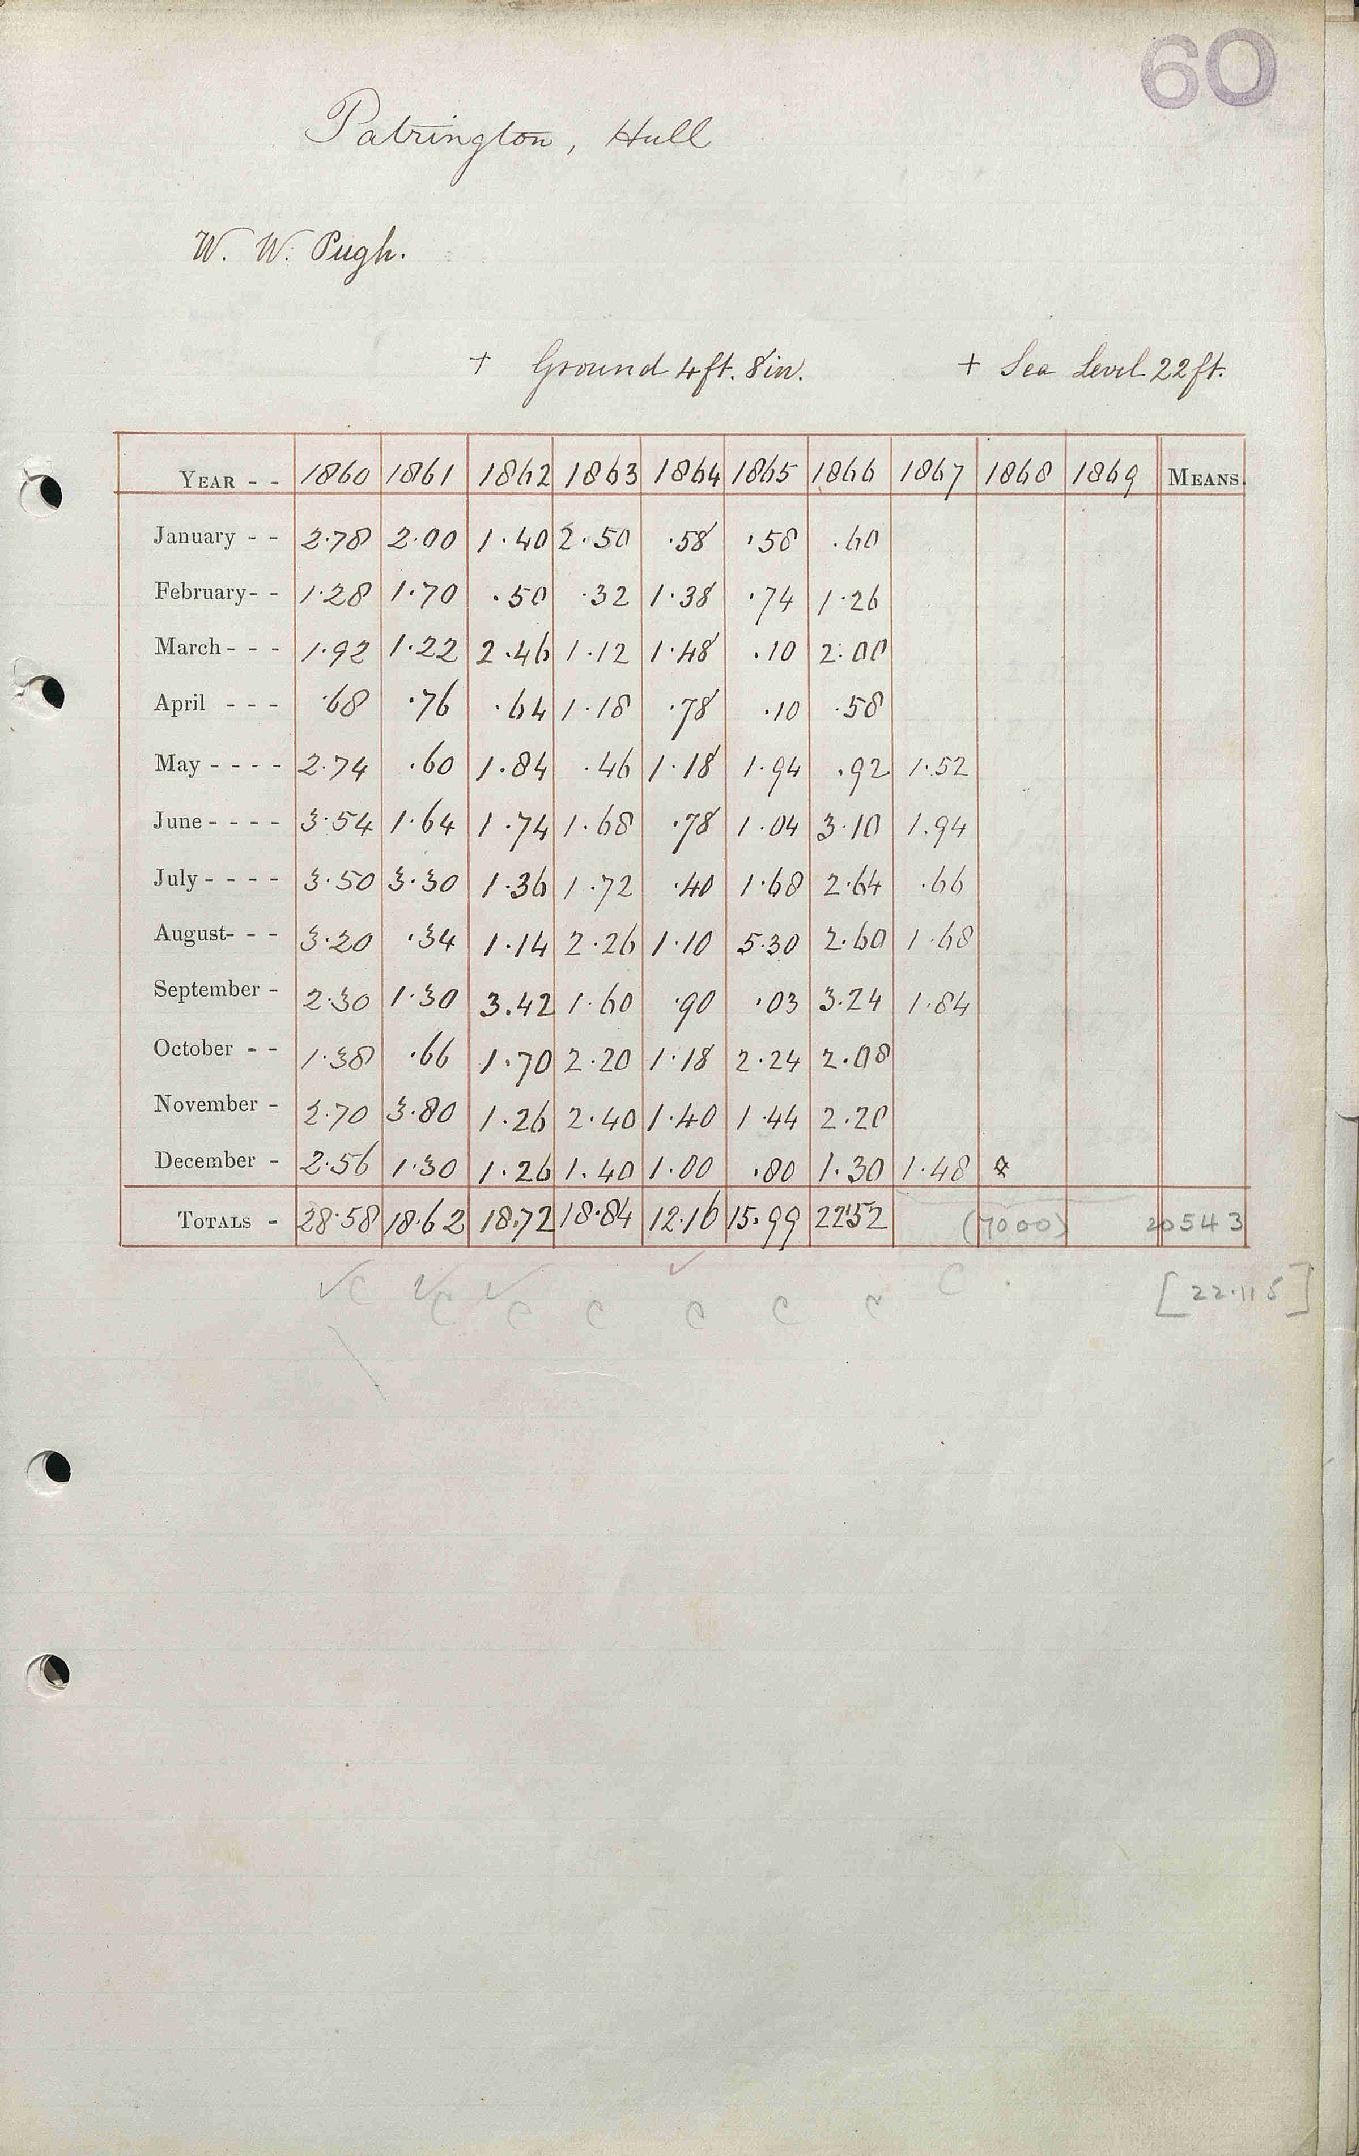 60
Patrington, Hull
W. W. Pugh.
+ Ground 4 ft. 8 in. + Sea Level 22 ft.
YEAR - - 1860 1861 1862 1863 1864 1865 1866 1867 1868 1869 MEANS.
January - - 2.78 2.00 1.40 2.50 .58 .58 .60
February - - 1.28 1.70 .50 .32 1.38 .74 1.26
March - - - 1.92 1.22 2.46 1.12 1.48 .10 2.00
April - - - .68 .76 .64 1.18 .78 .10 .58
May - - - - 2.74 .60 1.84 .46 1.18 1.94 .92 1.52
June - - - - 3.54 1.64 1.74 1.68 .78 1.04 3.10 1.94
July - - - - 3.50 3.30 1.36 1.72 .40 1.68 2.64 .66
August - - - 3.20 .34 1.14 2.26 1.10 5.30 2.60 1.68
September - 2.30 1.30 3.42 1.60 .90 .03 3.24 1.84
October - - 1.38 .66 1.70 2.20 1.18 2.24 2.08
November - 2.70 3.80 1.26 2.40 1.40 1.44 2.20
December - 2.56 1.30 1.26 1.40 1.00 .80 1.30 1.48
TOTALS - 28.58 18.62 18.72 18.84 12.16 15.99 22.52 (7000) 20543
✓c ✓c ✓c c ✓c c c c [22.115]